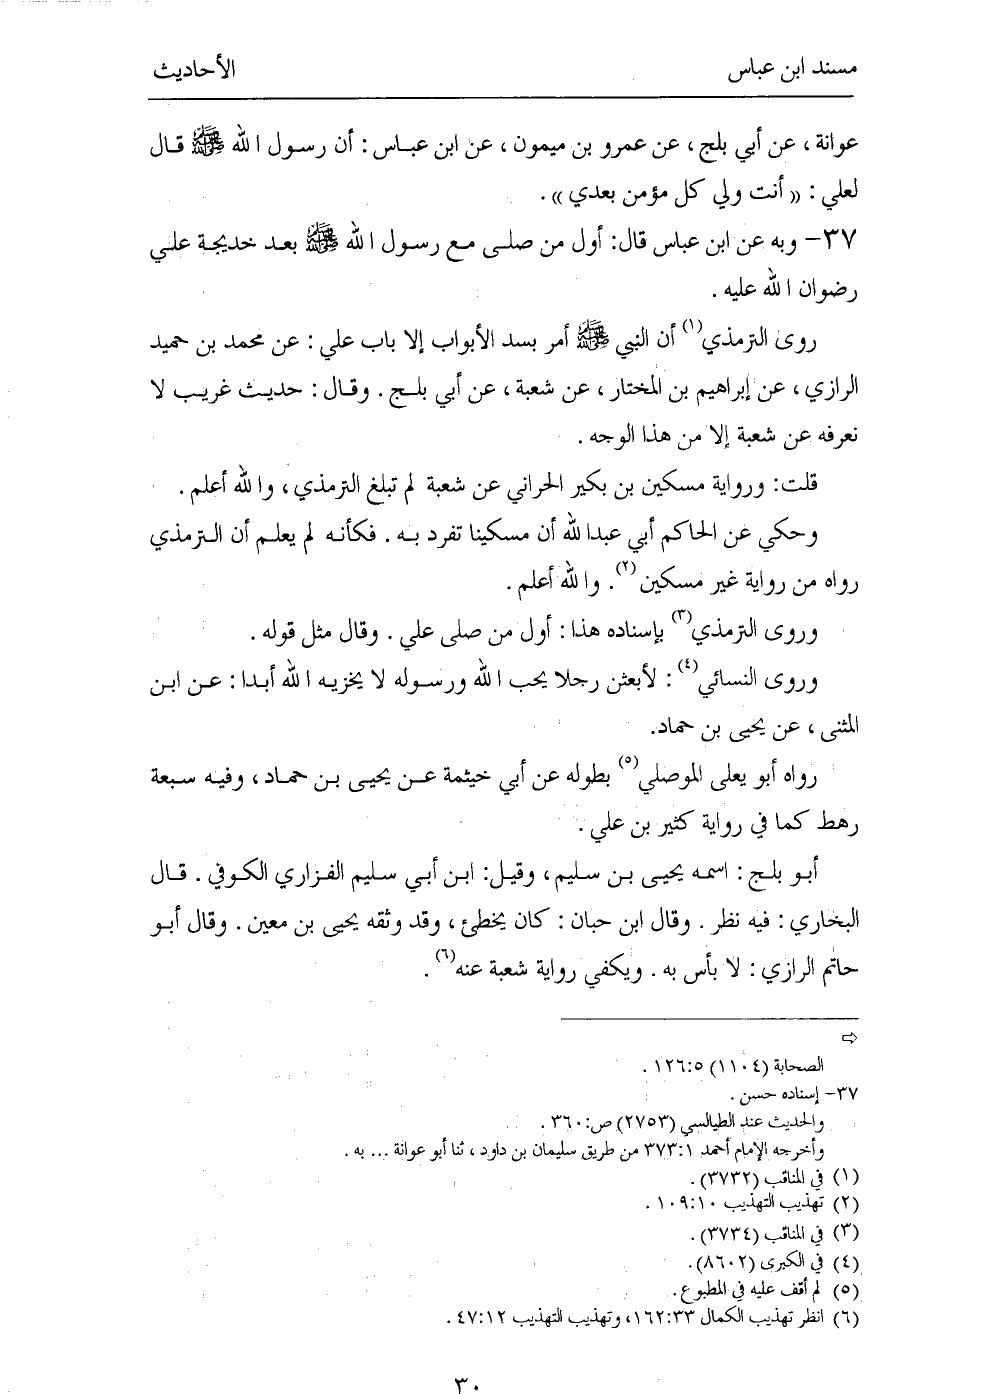 مسند ابن عباس
الأحاديث
عوانة ، عن أبي بلج ، عن عمرو بن ميمون ، عن ابن عباس : أن رسول الله ﷺ قال
لعلي : « أنت ولي كل مؤمن بعدي » .
٣٧- وبه عن ابن عباس قال: أول من صلى مع رسول الله ﷺ بعد خديجة علي
رضوان الله عليه .
روى الترمذي(١) أن النبي ﷺ أمر بسد الأبواب إلا باب علي : عن محمد بن حميد
الرازي ، عن إبراهيم بن المختار ، عن شعبة ، عن أبي بلج . وقال : حديث غريب لا
نعرفه عن شعبة إلا من هذا الوجه .
قلت: ورواية مسكين بن بكير الحراني عن شعبة لم تبلغ الترمذي ، والله أعلم .
وحكي عن الحاكم أبي عبدالله أن مسكينا تفرد به . فكأنه لم يعلم أن الترمذي
رواه من رواية غير مسكين(٢). والله أعلم .
وروى الترمذي(٣) بإسناده هذا : أول من صلى علي . وقال مثل قوله .
وروى النسائي(٤) : لأبعثن رجلا يحب الله ورسوله لا يخزيه الله أبدا : عن ابن
المثنى ، عن يحيى بن حماد.
رواه أبو يعلى الموصلي(٥) بطوله عن أبي خيثمة عن يحيى بن حماد ، وفيه سبعة
رهط كما في رواية كثير بن علي .
أبو بلج : اسمه يحيى بن سليم ، وقيل: ابن أبي سليم الفزاري الكوفي . قال
البخاري : فيه نظر . وقال ابن حبان : كان يخطئ ، وقد وثقه يحيى بن معين . وقال أبو
حاتم الرازي : لا بأس به . ويكفي رواية شعبة عنه(٦) .
⇨
الصحابة (١١٠٤) ١٢٦:٥ .
٣٧- إسناده حسن .
والحديث عند الطيالسي (٢٧٥٣) ص:٣٦٠ .
وأخرجه الإمام أحمد ٣٧٣:١ من طريق سليمان بن داود ، ثنا أبو عوانة ... به .
(١) في المناقب (٣٧٣٢).
(٢) تهذيب التهذيب ١٠٩:١٠ .
(٣) في المناقب (٣٧٣٤).
(٤) في الكبرى (٨٦٠٢).
(٥) لم أقف عليه في المطبوع.
(٦) انظر تهذيب الكمال ١٦٢:٣٣، وتهذيب التهذيب ٤٧:١٢ .
٣٠